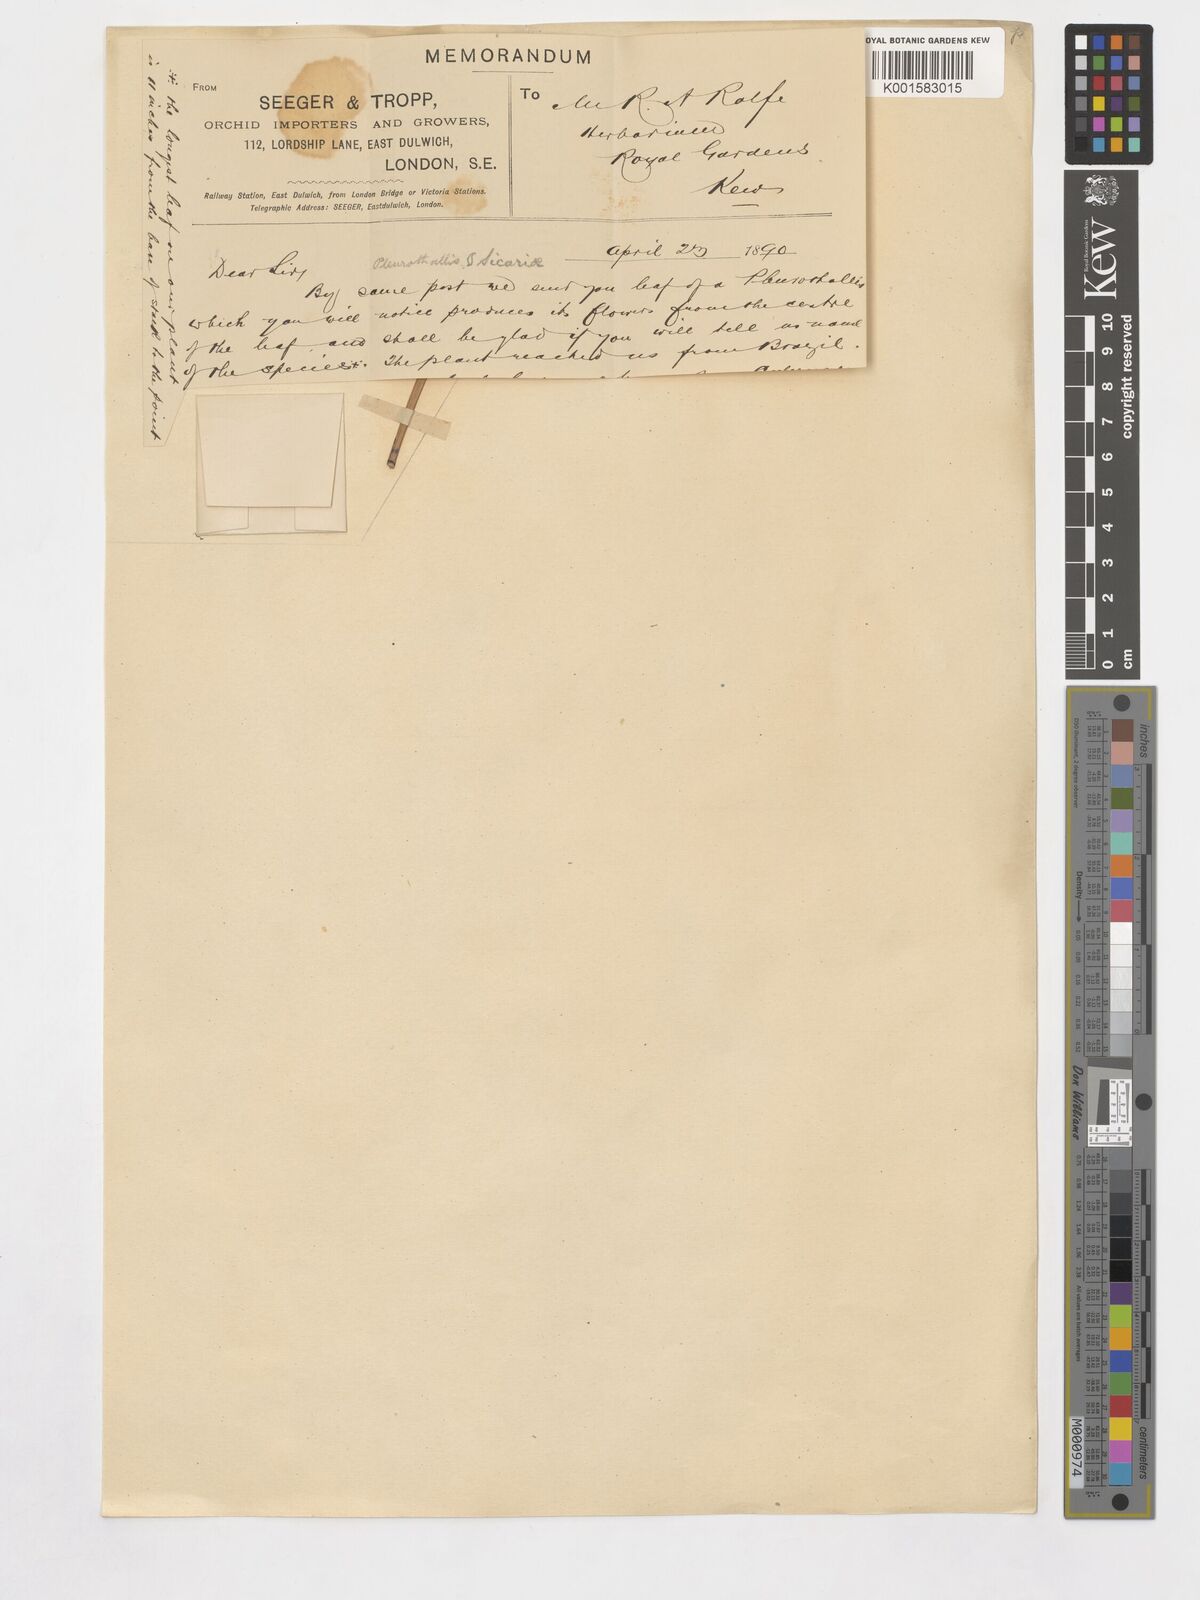 MEMORANDUM
FROM
SEEGER & TROPP,
ORCHID IMPORTERS AND GROWERS,
112, LORDSHIP LANE, EAST DULWICH,
LONDON, S.E.
Railway Station, East Dulwich, from London Bridge or Victoria Stations.
Telegraphic Address: SEEGER, Eastdulwich, London.
To
Mr R. A Rolfe
Herbarium
Royal Gardens
Kew
April 23 1890
Pleurothallis Sicariæ
Dear Sir,
By same post we send you leaf of a Pleurothallis
which you will notice produces its flowers from the centre
of the leaf and shall be glad if you will tell us name
of the species. The plant reached us from Brazil.
the longest leaf on our plant
is 11 inches from the base of stalk to the point
ROYAL BOTANIC GARDENS KEW
K001583015
Royal Botanic Gardens
Kew
0 1 2 3 4 5 6 7 8 9 10
cm
copyright reserved
inches
centimeters
Density
Don Williams
M000974